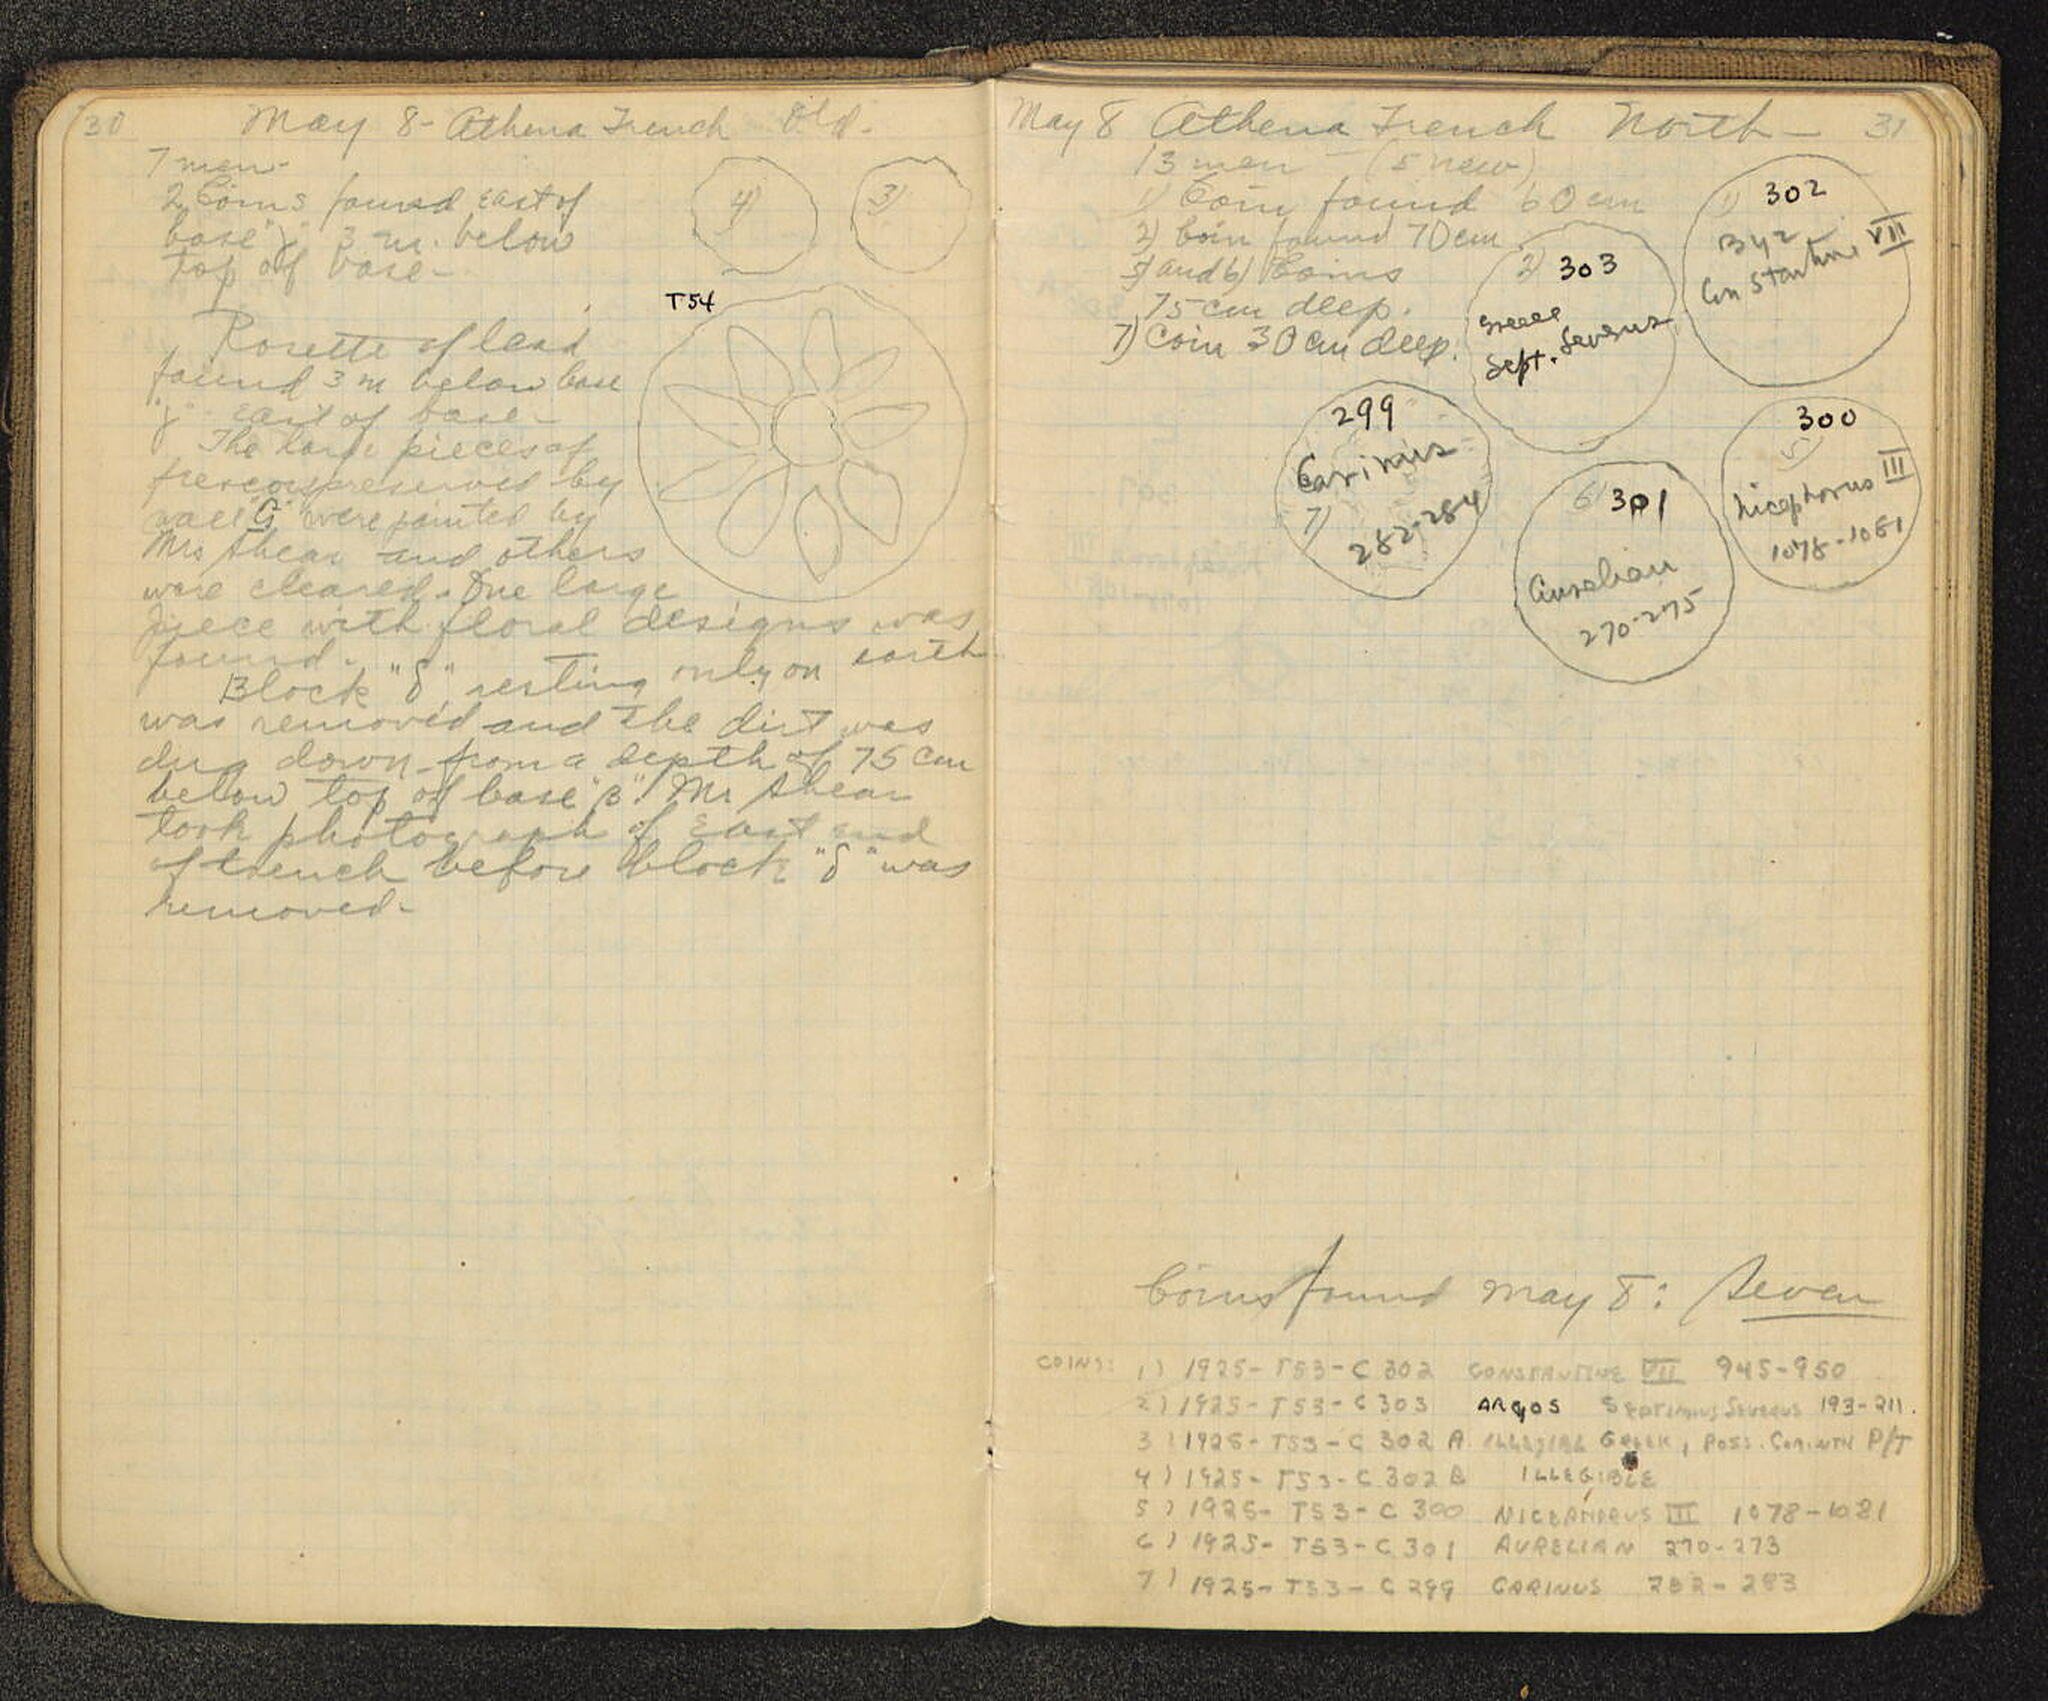 30 May 8 - Athena Trench Old -
7 men -
2 Coins found East of
base "j" 3 m. below
top of base -
4) 3)
T54
Rosette of lead
found 3 m below base
"j" east of base -
The large pieces of
fresco preserved by
wall "G" were painted by
Mrs Shear and others
were cleared. One large
piece with floral designs was
found -
Block "δ" resting only on earth
was removed and the dirt was
dug down from a depth of 75 cm
below top of base "β". Mr Shear
took photograph of East end
of trench before block "δ" was
removed -
May 8 Athena Trench North - 31
13 men - (5 new)
1) Coin found 60 cm
2) Coin found 70 cm
5) and 6) Coins
75 cm deep.
7) Coin 30 cm deep.
1) 302
Byz
Constantine VII
2) 303
Sept. Severus
299
Carinus
7)
282-284
300
5)
Nicephorus III
1078-1081
6) 301
Aurelian
270-275
Coins found May 8: Seven
COINS: 1) 1925- T53- C 302 CONSTANTINE VII 945-950
2) 1925- T53- C 303 ARGOS SEPTIMIUS SEVERUS 193-211.
3) 1925- T53- C 302 A ILLEGIBLE GREEK, POSS. CORINTH P/T
4) 1925- T53- C 302 B ILLEGIBLE
5) 1925- T53- C 300 III 1078-1081
6) 1925- T53- C 301 AURELIAN 270-273
7) 1925- T53- C 299 CARINUS 282-283